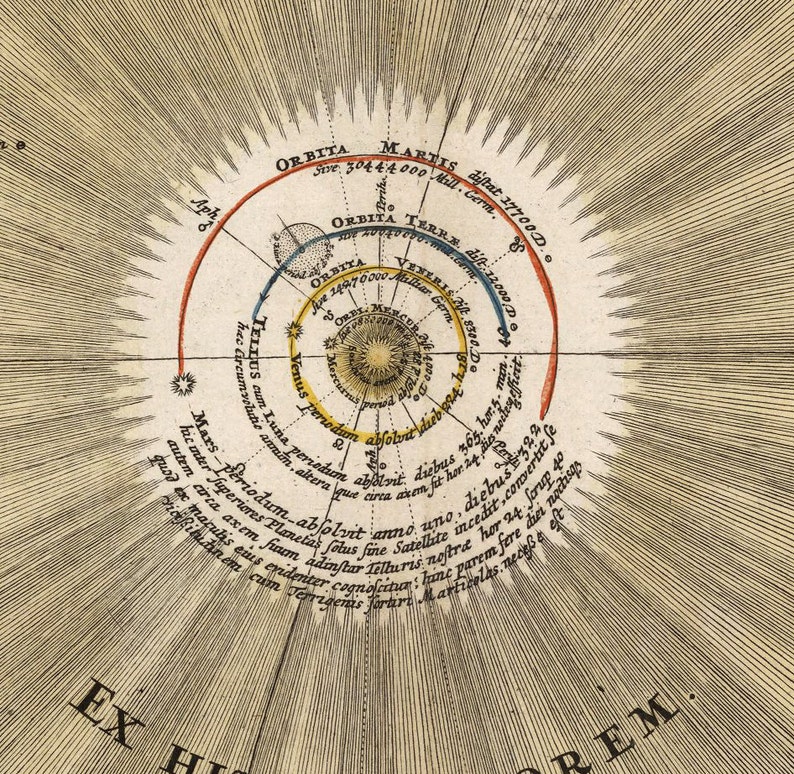 ORBITA MARTIS distat 17700 D.
Sive 30444000 Mill. Germ.
Aph.
Perih.
ORBITA TERRÆ dist. 12000 D.
Mill. Germ.
ORBITA VENERIS dist. 8300 D.
Sive 14276000 Milliar Germ
ORBI. MERCUR
Mercurius period
Venus periodum absolvit dieb. 224
TELLUS cum Luna periodum absolvit diebus 365, hor. 5, min.
hæc circumvolutio annua, altera quæ circa axem fit hor. 24
Aph.
MARS periodum absolvit anno uno, diebus 322
hic inter superiores Planetas solus sine Satellite incedit, convertit se
autem circa axem suum adinstar Telluris nostræ hor 24 scrup 40
quod ex maculis ejus evidenter cognoscitur; hinc parem fere diei noctisq3
vicissitudinem cum Terrigenis sortiri Marticolas necesse est
EX HI OREM.